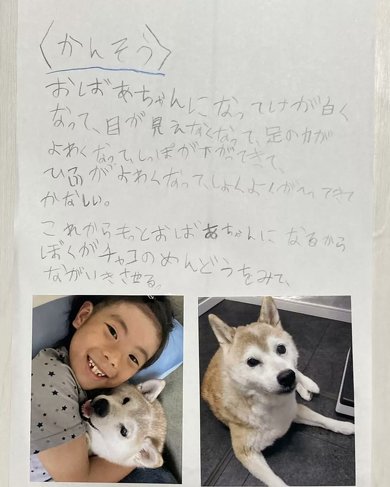 〈かんそう〉
おばあちゃんになってけが白く
なって、目が見えなくなって、足の力が
よわくなって、しっぽが下がってきて、
ひふがよわくなって、しょくよくがへってきて
かなしい。
これからもっとおばあちゃんになるから
ぼくがチャコのめんどうをみて、
ながいきさせる。